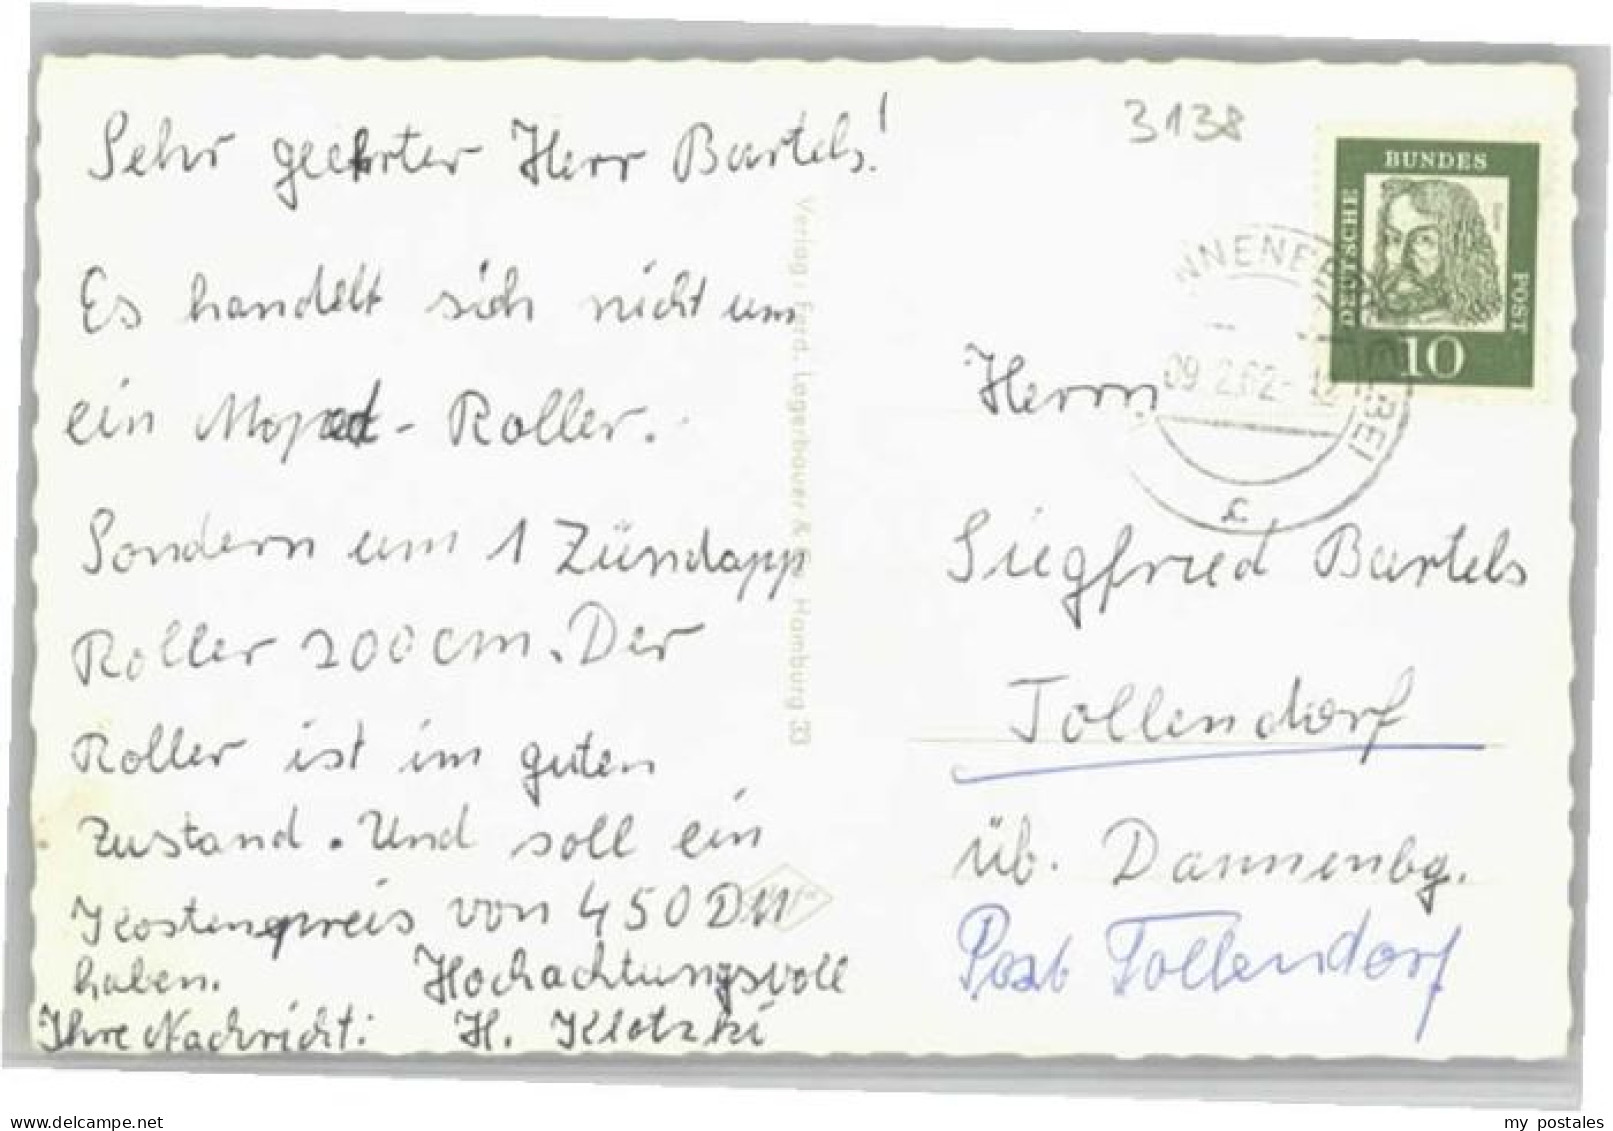 Sehr geehrter Herr Bartels!
Es handelt sich nicht um
ein Moped-Roller.
Sondern um 1 Zündapp
Roller 200 cm. Der
Roller ist im guten
Zustand. Und soll ein
Kostenpreis von 450 DM
haben. Hochachtungsvoll
Ihre Nachricht: H. Klotzki
Verlag: Ferd. Lagerbauer & Co Hamburg 33
3138
DEUTSCHE
BUNDES
POST
10
NNENE
09.2.62-12
c
Herrn
Siegfried Bartels
Tollendorf
üb. Dannenbg.
Post Tollendorf
my postales
www.delcampe.net